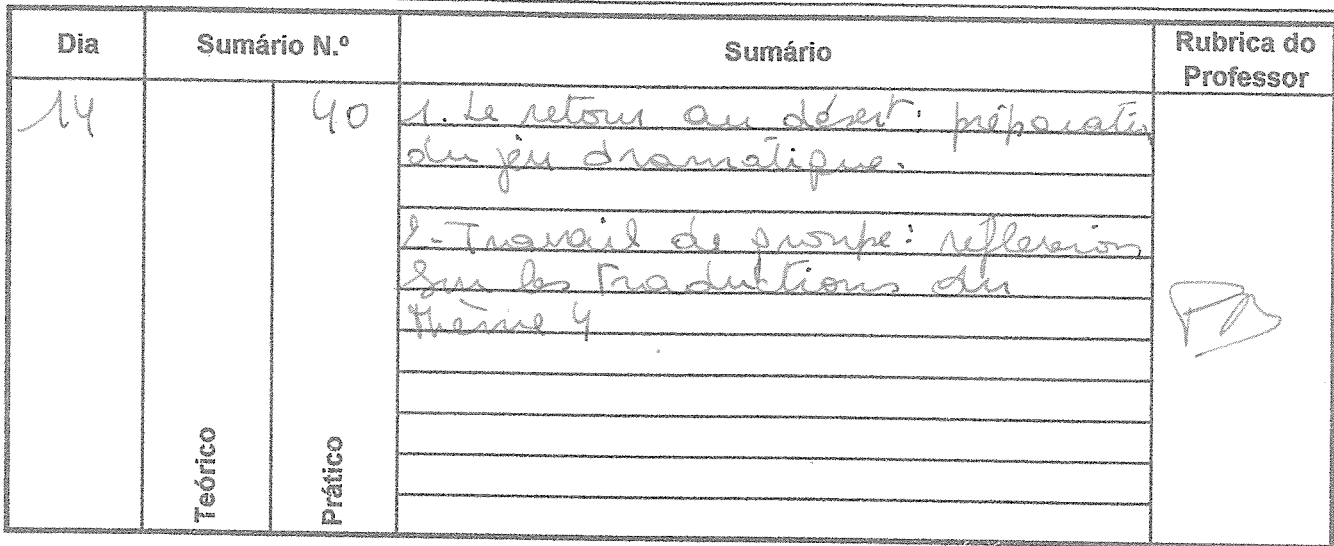 Dia Sumário N.º Sumário Rubrica do Professor
14 40 1. Le retour au désert: préparation
du jeu dramatique.
2-Travail de groupe: réflexion
sur les traductions du
thème 4
Teórico Prático